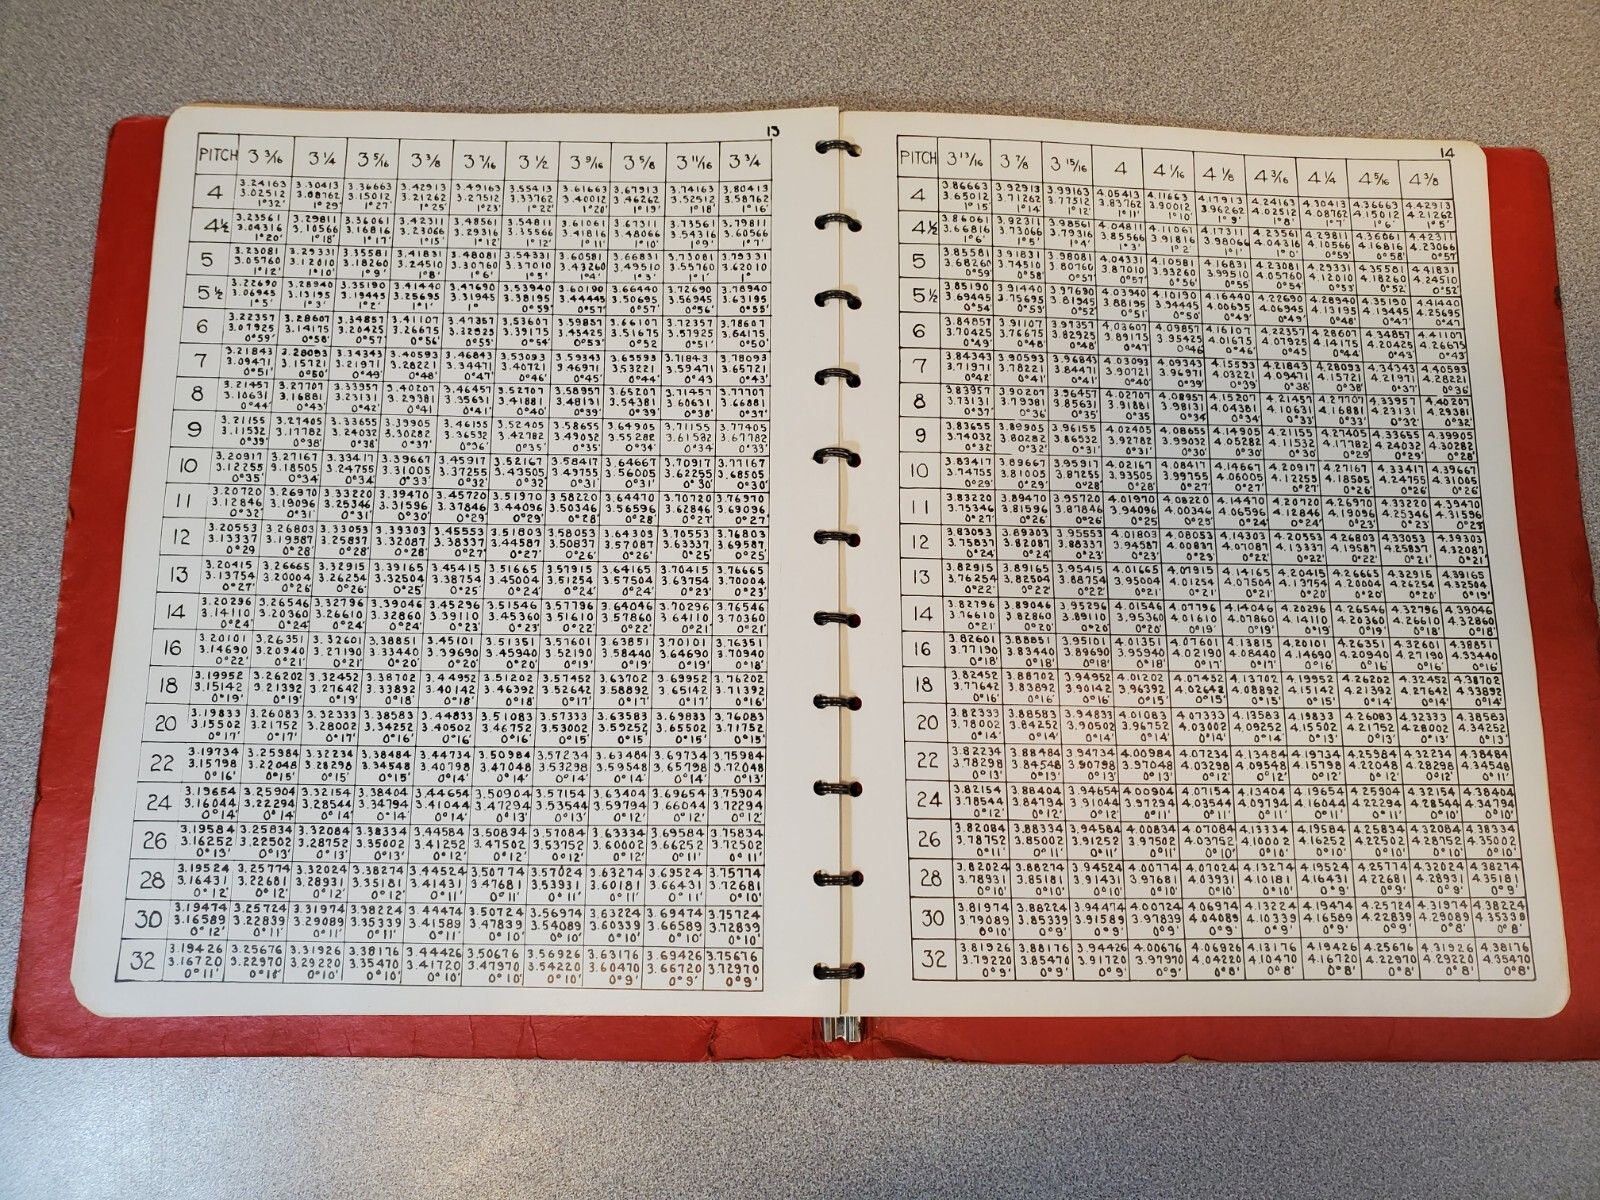 13
PITCH 3 3/16 3 1/4 3 5/16 3 3/8 3 7/16 3 1/2 3 9/16 3 5/8 3 11/16 3 3/4
3.24163 3.30413 3.36663 3.42913 3.49163 3.55413 3.61663 3.67913 3.74163 3.80413
4 3.02512 3.08762 3.15012 3.21262 3.27512 3.33762 3.40012 3.46262 3.52512 3.58762
1°32' 1°29' 1°27' 1°25' 1°23' 1°22' 1°20' 1°19' 1°18' 1°16'
3.23561 3.29811 3.36061 3.42311 3.48561 3.54811 3.61061 3.67311 3.73561 3.79811
4½ 3.04316 3.10566 3.16816 3.23066 3.29316 3.35566 3.41816 3.48066 3.54316 3.60566
1°20' 1°18' 1°17' 1°15' 1°12' 1°12' 1°11' 1°10' 1°9' 1°7'
3.23081 3.29331 3.35581 3.41831 3.48081 3.54331 3.60581 3.66831 3.73081 3.79331
5 3.05760 3.12010 3.18260 3.24510 3.30760 3.37010 3.43260 3.49510 3.55760 3.62010
1°12' 1°10' 1°9' 1°8' 1°6' 1°5' 1°4' 1°3' 1°1' 1°
3.22690 3.28940 3.35190 3.41440 3.47690 3.53940 3.60190 3.66440 3.72690 3.78940
5½ 3.06945 3.13195 3.19445 3.25695 3.31945 3.38195 3.44445 3.50695 3.56945 3.63195
1°5' 1°3' 1°2' 1°1' 1° 0°59' 0°57' 0°57' 0°56' 0°55'
3.22357 3.28607 3.34857 3.41107 3.47357 3.53607 3.59857 3.66107 3.72357 3.78607
6 3.07925 3.14175 3.20425 3.26675 3.32925 3.39175 3.45425 3.51675 3.57925 3.64175
0°59' 0°58' 0°57' 0°56' 0°55' 0°54' 0°53' 0°52 0°51' 0°50'
3.21843 3.28093 3.34343 3.40593 3.46843 3.53093 3.59343 3.65593 3.71843 3.78093
7 3.09471 3.15721 3.21971 3.28221 3.34471 3.40721 3.46971 3.53221 3.59471 3.65721
0°51' 0°50' 0°49' 0°48' 0°47' 0°46' 0°45' 0°44' 0°43 0°43'
3.21457 3.27707 3.33957 3.40207 3.46457 3.52707 3.58957 3.65207 3.71457 3.77707
8 3.10631 3.16881 3.23131 3.29381 3.35631 3.41881 3.48131 3.54381 3.60631 3.66881
0°44' 0°43' 0°42' 0°41 0°41' 0°40' 0°39' 0°39' 0°38' 0°37'
3.21155 3.27405 3.33655 3.39905 3.46155 3.52405 3.58655 3.64905 3.71155 3.77405
9 3.11532 3.17782 3.24032 3.30282 3.36532 3.42782 3.49032 3.55282 3.61532 3.67782
0°39' 0°38' 0°38' 0°37' 0°36' 0°35' 0°35' 0°34' 0°34 0°33'
3.20917 3.27167 3.33417 3.39667 3.45917 3.52167 3.58417 3.64667 3.70917 3.77167
10 3.12255 3.18505 3.24755 3.31005 3.37255 3.43505 3.49755 3.56005 3.62255 3.68505
0°35' 0°34' 0°34' 0°33' 0°32' 0°32' 0°31' 0°31' 0°30' 0°30'
3.20720 3.26970 3.33220 3.39470 3.45720 3.51970 3.58220 3.64470 3.70720 3.76970
11 3.12846 3.19096 3.25346 3.31596 3.37846 3.44096 3.50346 3.56596 3.62846 3.69096
0°32' 0°31' 0°31' 0°30' 0°29' 0°29' 0°28' 0°28' 0°27' 0°27'
3.20553 3.26803 3.33053 3.39303 3.45553 3.51803 3.58053 3.64303 3.70553 3.76803
12 3.13337 3.19587 3.25837 3.32087 3.38337 3.44587 3.50837 3.57087 3.63337 3.69587
0°29 0°28' 0°28' 0°28' 0°27' 0°27' 0°26' 0°26' 0°25' 0°25'
3.20415 3.26665 3.32915 3.39165 3.45415 3.51665 3.57915 3.64165 3.70415 3.76665
13 3.13754 3.20004 3.26254 3.32504 3.38754 3.45004 3.51254 3.57504 3.63754 3.70004
0°27' 0°26' 0°26' 0°25' 0°25' 0°24' 0°24' 0°24' 0°23' 0°23'
3.20296 3.26546 3.32796 3.39046 3.45296 3.51546 3.57796 3.64046 3.70296 3.76546
14 3.14110 3.20360 3.26610 3.32860 3.39110 3.45360 3.51610 3.57860 3.64110 3.70360
0°24' 0°24' 0°24' 0°24' 0°23' 0°23' 0°22' 0°22' 0°21' 0°21'
3.20101 3.26351 3.32601 3.38851 3.45101 3.51351 3.57601 3.63851 3.70101 3.76351
16 3.14690 3.20940 3.27190 3.33440 3.39690 3.45940 3.52190 3.58440 3.64690 3.70940
0°22' 0°21' 0°21' 0°20' 0°20' 0°20' 0°19' 0°19' 0°19' 0°18'
3.19952 3.26202 3.32452 3.38702 3.44952 3.51202 3.57452 3.63702 3.69952 3.76202
18 3.15142 3.21392 3.27642 3.33892 3.40142 3.46392 3.52642 3.58892 3.65142 3.71392
0°19' 0°19' 0°19' 0°18' 0°18' 0°18' 0°17' 0°17' 0°17' 0°16'
3.19833 3.26083 3.32333 3.38583 3.44833 3.51083 3.57333 3.63583 3.69833 3.76083
20 3.15502 3.21752 3.28002 3.34252 3.40502 3.46752 3.53002 3.59252 3.65502 3.71752
0°17' 0°17' 0°17' 0°16' 0°16' 0°16' 0°15' 0°15' 0°15' 0°15'
3.19734 3.25984 3.32234 3.38484 3.44734 3.50984 3.57234 3.63484 3.69734 3.75984
22 3.15798 3.22048 3.28298 3.34548 3.40798 3.47048 3.53298 3.59548 3.65798 3.72048
0°16' 0°15' 0°15' 0°15' 0°14' 0°14' 0°14' 0°14' 0°13' 0°13'
3.19654 3.25904 3.32154 3.38404 3.44654 3.50904 3.57154 3.63404 3.69654 3.75904
24 3.16044 3.22294 3.28544 3.34794 3.41044 3.47294 3.53544 3.59794 3.66044 3.72294
0°14' 0°14' 0°14' 0°14' 0°14' 0°13' 0°13' 0°13' 0°12' 0°12'
3.19584 3.25834 3.32084 3.38334 3.44584 3.50834 3.57084 3.63334 3.69584 3.75834
26 3.16252 3.22502 3.28752 3.35002 3.41252 3.47502 3.53752 3.60002 3.66252 3.72502
0°13' 0°13' 0°13' 0°13' 0°12' 0°12' 0°12' 0°12' 0°11' 0°11'
3.19524 3.25774 3.32024 3.38274 3.44524 3.50774 3.57024 3.63274 3.69524 3.75774
28 3.16431 3.22681 3.28931 3.35181 3.41431 3.47681 3.53931 3.60181 3.66431 3.72681
0°12' 0°12' 0°12' 0°12' 0°11' 0°11' 0°11' 0°11' 0°11' 0°10'
3.19474 3.25724 3.31974 3.38224 3.44474 3.50724 3.56974 3.63224 3.69474 3.75724
30 3.16589 3.22839 3.29089 3.35339 3.41589 3.47839 3.54089 3.60339 3.66589 3.72839
0°12' 0°11' 0°11' 0°11' 0°11' 0°10' 0°10' 0°10' 0°10' 0°10'
3.19426 3.25676 3.31926 3.38176 3.44426 3.50676 3.56926 3.63176 3.69426 3.75676
32 3.16720 3.22970 3.29220 3.35470 3.41720 3.47970 3.54220 3.60470 3.66720 3.72970
0°11' 0°10' 0°10' 0°10' 0°10' 0°10' 0°9' 0°9' 0°9'
14
PITCH 3 13/16 3 7/8 3 15/16 4 4 1/16 4 1/8 4 3/16 4 1/4 4 5/16 4 3/8
3.86663 3.92913 3.99163 4.05413 4.11663 4.17913 4.24163 4.30413 4.36663 4.42913
4 3.65012 3.71262 3.77512 3.83762 3.90012 3.96262 4.02512 4.08762 4.15012 4.21262
1°15' 1°14' 1°12' 1°11' 1°10' 1°9' 1°8' 1°7' 1°6' 1°5'
3.86061 3.92311 3.98561 4.04811 4.11061 4.17311 4.23561 4.29811 4.36061 4.42311
4½ 3.66816 3.73066 3.79316 3.85566 3.91816 3.98066 4.04316 4.10566 4.16816 4.23066
1°6' 1°5' 1°4' 1°3' 1°2' 1°1' 1°0' 0°59' 0°58' 0°57'
3.85581 3.91831 3.98081 4.04331 4.10581 4.16831 4.23081 4.29331 4.35581 4.41831
5 3.68260 3.74510 3.80760 3.87010 3.93260 3.99510 4.05760 4.12010 4.18260 4.24510
0°59' 0°58' 0°57 0°57' 0°56' 0°55 0°54' 0°53' 0°52' 0°52'
3.85190 3.91440 3.97690 4.03940 4.10190 4.16440 4.22690 4.28940 4.35190 4.41440
5½ 3.69445 3.75695 3.81945 3.88195 3.94445 4.00695 4.06945 4.13195 4.19445 4.25695
0°54' 0°53' 0°52' 0°51' 0°50' 0°49' 0°49' 0°48' 0°47' 0°47'
3.84857 3.91107 3.97357 4.03607 4.09857 4.16107 4.22357 4.28607 4.34857 4.41107
6 3.70425 3.76675 3.82925 3.89175 3.95425 4.01675 4.07925 4.14175 4.20425 4.26675
0°49' 0°48' 0°48' 0°47 0°46 0°46' 0°45 0°44' 0°43' 0°43'
3.84343 3.90593 3.96843 4.03093 4.09343 4.15593 4.21843 4.28093 4.34343 4.40593
7 3.71971 3.78221 3.84471 3.90721 3.96971 4.03221 4.09471 4.15721 4.21971 4.28221
0°42' 0°41' 0°41' 0°40' 0°39' 0°39' 0°38' 0°38' 0°37' 0°36'
3.83957 3.90207 3.96457 4.02707 4.08957 4.15207 4.21457 4.27707 4.33957 4.40207
8 3.73131 3.79381 3.85631 3.91881 3.98131 4.04381 4.10631 4.16881 4.23131 4.29381
0°37' 0°36' 0°35' 0°35 0°34' 0°34' 0°33' 0°33' 0°32' 0°32'
3.83655 3.89905 3.96155 4.02405 4.08655 4.14905 4.21155 4.27405 4.33655 4.39905
9 3.74032 3.80282 3.86532 3.92782 3.99032 4.05282 4.11532 4.17782 4.24032 4.30282
0°32' 0°32' 0°31' 0°31' 0°30' 0°30' 0°30' 0°29' 0°29' 0°28'
3.83417 3.89667 3.95917 4.02167 4.08417 4.14667 4.20917 4.27167 4.33417 4.39667
10 3.74755 3.81005 3.87255 3.93505 3.99755 4.06005 4.12255 4.18505 4.24755 4.31005
0°29' 0°29' 0°28' 0°28' 0°27' 0°27' 0°27' 0°26' 0°26' 0°26'
3.83220 3.89470 3.95720 4.01970 4.08220 4.14470 4.20720 4.26970 4.33220 4.39470
11 3.75346 3.81596 3.87846 3.94096 4.00346 4.06596 4.12846 4.19096 4.25346 4.31596
0°27' 0°26' 0°26' 0°25 0°25' 0°24' 0°24' 0°23' 0°23' 0°23'
3.83053 3.89303 3.95553 4.01803 4.08053 4.14303 4.20553 4.26803 4.33053 4.39303
12 3.75837 3.82087 3.88337 3.94587 4.00837 4.07087 4.13337 4.19587 4.25837 4.32087
0°24' 0°24' 0°23' 0°23' 0°22' 0°22' 0°22' 0°21' 0°21'
3.82915 3.89165 3.95415 4.01665 4.07915 4.14165 4.20415 4.26665 4.32915 4.39165
13 3.76254 3.82504 3.88754 3.95004 4.01254 4.07504 4.13754 4.20004 4.26254 4.32504
0°22' 0°22' 0°22' 0°21' 0°21' 0°21' 0°20' 0°20' 0°20' 0°19'
3.82796 3.89046 3.95296 4.01546 4.07796 4.14046 4.20296 4.26546 4.32796 4.39046
14 3.76610 3.82860 3.89110 3.95360 4.01610 4.07860 4.14110 4.20360 4.26610 4.32860
0°21' 0°20' 0°20' 0°20' 0°19' 0°19' 0°19' 0°19' 0°18' 0°18'
3.82601 3.88851 3.95101 4.01351 4.07601 4.13815 4.20101 4.26351 4.32601 4.38851
16 3.77190 3.83440 3.89690 3.95940 4.02190 4.08440 4.14690 4.20940 4.27190 4.33440
0°18' 0°18' 0°18' 0°18' 0°17' 0°17' 0°16' 0°16' 0°16' 0°16'
3.82452 3.88702 3.94952 4.01202 4.07452 4.13702 4.19952 4.26202 4.32452 4.38702
18 3.77642 3.83892 3.90142 3.96392 4.02642 4.08892 4.15142 4.21392 4.27642 4.33892
0°16' 0°16' 0°16' 0°15' 0°15' 0°15' 0°15' 0°14' 0°14' 0°14'
3.82333 3.88583 3.94833 4.01083 4.07333 4.13583 4.19833 4.26083 4.32333 4.38583
20 3.78002 3.84252 3.90502 3.96752 4.03002 4.09252 4.15502 4.21752 4.28002 4.34252
0°14' 0°14' 0°14' 0°14' 0°14' 0°14' 0°13' 0°13' 0°13' 0°13'
3.82234 3.88484 3.94734 4.00984 4.07234 4.13484 4.19734 4.25984 4.32234 4.38484
22 3.78298 3.84548 3.90798 3.97048 4.03298 4.09548 4.15798 4.22048 4.28298 4.34548
0°13' 0°13' 0°13' 0°13' 0°12' 0°12' 0°12' 0°12' 0°12' 0°11'
3.82154 3.88404 3.94654 4.00904 4.07154 4.13404 4.19654 4.25904 4.32154 4.38404
24 3.78544 3.84794 3.91044 3.97294 4.03544 4.09794 4.16044 4.22294 4.28544 4.34790
0°12' 0°12' 0°12' 0°11' 0°11' 0°11' 0°11' 0°11' 0°10' 0°10'
3.82084 3.88334 3.94584 4.00834 4.07084 4.13334 4.19584 4.25834 4.32084 4.38334
26 3.78752 3.85002 3.91252 3.97502 4.03752 4.10002 4.16252 4.22502 4.28752 4.35002
0°11' 0°11' 0°11' 0°11' 0°10' 0°10' 0°10' 0°10' 0°10' 0°10'
3.82024 3.88274 3.94524 4.00774 4.07024 4.13274 4.19524 4.25774 4.32024 4.38274
28 3.78931 3.85181 3.91431 3.97681 4.03931 4.10181 4.16431 4.22681 4.28931 4.35181
0°10' 0°10' 0°10' 0°10' 0°10' 0°10' 0°9' 0°9' 0°9' 0°9'
3.81974 3.88224 3.94474 4.00724 4.06974 4.13224 4.19474 4.25724 4.31974 4.38224
30 3.79089 3.85339 3.91589 3.97839 4.04089 4.10339 4.16589 4.22839 4.29089 4.35339
0°10' 0°9' 0°9' 0°9' 0°9' 0°9' 0°9' 0°9' 0°8' 0°8'
3.81926 3.88176 3.94426 4.00676 4.06926 4.13176 4.19426 4.25676 4.31926 4.38176
32 3.79220 3.85470 3.91720 3.97970 4.04220 4.10470 4.16720 4.22970 4.29220 4.35470
0°9' 0°9' 0°9' 0°9' 0°8' 0°8' 0°8' 0°8' 0°8' 0°8'